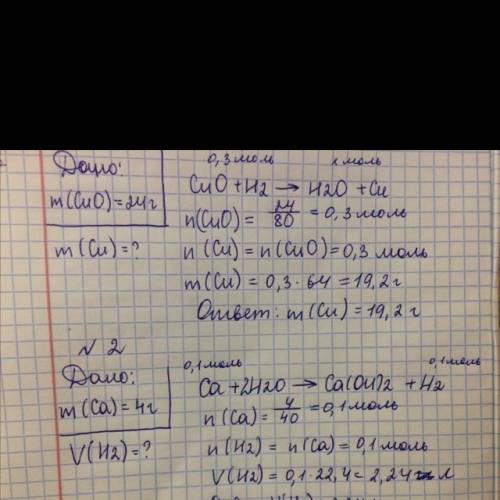 0,3 моль х моль
Дано:
CuO + H2 → H2O + Cu
m(CuO)=24г
n(CuO) = 24/80 = 0,3 моль
m(Cu)=?
n(Cu) = n(CuO)=0,3 моль
m(Cu) = 0,3·64 = 19,2 г
Ответ: m(Cu) = 19,2 г
№2
0,1 моль 0,1 моль
Дано:
Ca + 2H2O → Ca(OH)2 + H2
m(Ca)=4г
n(Ca) = 4/40 = 0,1 моль
V(H2)=?
n(H2) = n(Ca) = 0,1 моль
V(H2) = 0,1·22,4 = 2,24 л